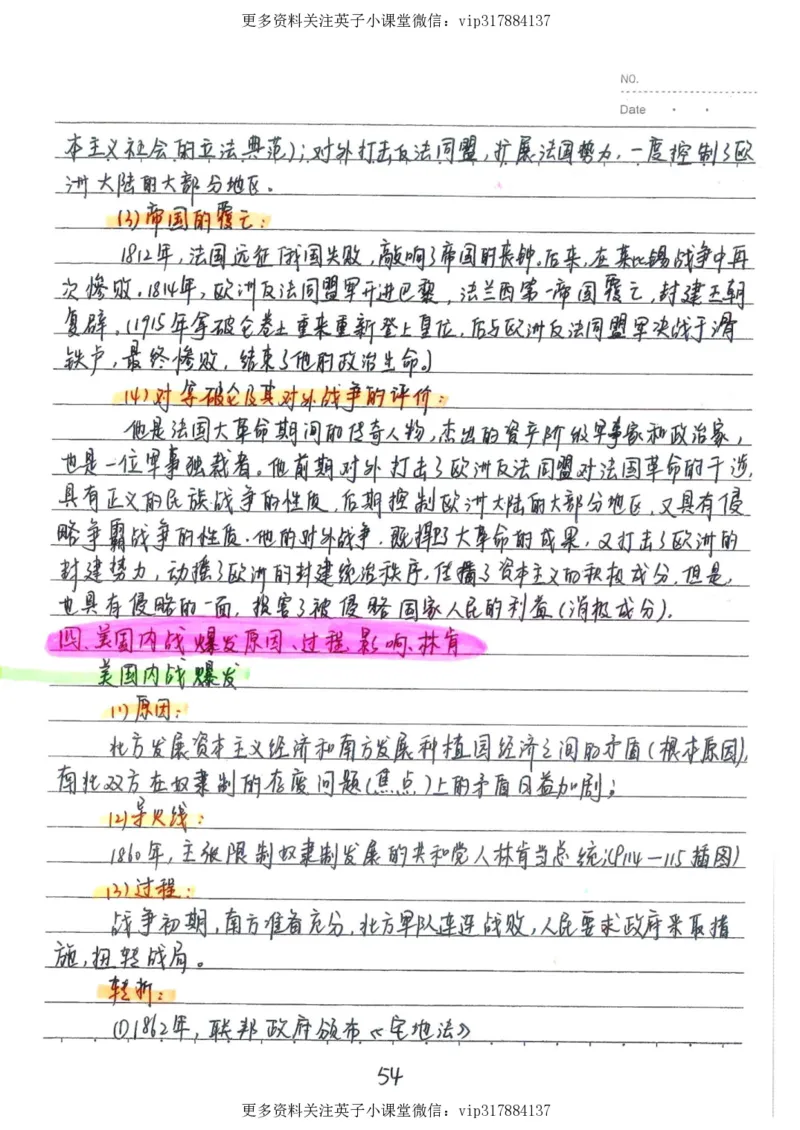 更多资料关注英子小课堂微信：vip317884137
NO.
Date
本主义社会的立法典范）；对外打击反法同盟，扩展法国势力，一度控制了欧
洲大陆的大部分地区。
(3)帝国的覆亡：
1812年，法国远征俄国失败，敲响了帝国的丧钟。后来，在莱比锡战争中再
次惨败。1814年，欧洲反法同盟军开进巴黎，法兰西第一帝国覆亡，封建王朝
复辟。(1915年拿破仑卷土重来重新登上皇位，后与欧洲反法同盟军决战于滑
铁卢，最终惨败，结束了他的政治生命。)
(4)对拿破仑及其对外战争的评价：
他是法国大革命期间的传奇人物，杰出的资产阶级军事家和政治家，
也是一位军事独裁者。他前期对外打击了欧洲反法同盟对法国革命的干涉，
具有正义的民族战争的性质，后期控制欧洲大陆的大部分地区，又具有侵
略争霸战争的性质。他的对外战争，既捍卫了大革命的成果，又打击了欧洲的
封建势力，动摇了欧洲的封建统治秩序，传播了资本主义的积极成分，但是，
也具有侵略的一面，损害了被侵略国家人民的利益（消极成分）。
四、美国内战爆发原因、过程、影响、林肯
美国内战爆发
(1)原因：
北方发展资本主义经济和南方发展种植园经济之间的矛盾（根本原因），
南北双方在奴隶制的存废问题（焦点）上的矛盾日益加剧；
(2)导火线：
1860年，主张限制奴隶制发展的共和党人林肯当总统；(P114—115插图)
(3)过程：
战争初期，南方准备充分，北方军队连连战败，人民要求政府采取措
施，扭转战局。
转折：
①1862年，联邦政府颁布《宅地法》
54
更多资料关注英子小课堂微信：vip317884137